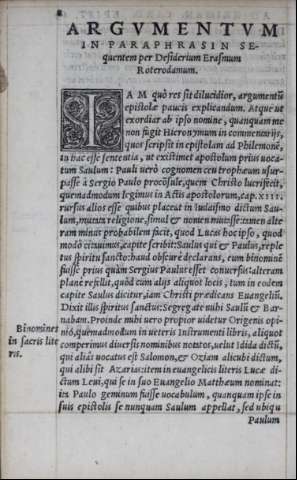 ARGVMENTVM
IN PARAPHRASIN SE-
quentem per Desiderium Erasmum
Roterodamum.
IAM quò res sit dilucidior, argumentũ
epistolæ paucis explicandum. Atque ut
exordiar ab ipso nomine, quanquam me
non fugit Hieronymum in commentarijs,
quos scripsit in epistolam ad Philemonē,
in hac esse sententia, ut existimet apostolum prius uoca-
tum Saulum: Pauli uerò cognomen ceu trophæum usur-
passe à Sergio Paulo procōsule, quem Christo lucrifecit,
quemadmodum legimus in Actis apostolorum, cap. XIII.
rursus alios esse quibus placeat in Iudaismo dictum Sau-
lum, mutata religione, simul & nomen mutasse: tamen alte
ram minus probabilem facit, quod Lucas hoc ipso, quod
modò citauimus, capite scribit: Saulus qui & Paulus, reple
tus spiritu sancto: haud obscurè declarans, eum binominē
fuisse prius quàm Sergius Paulus esset conuersus: alteram
planè refellit, quòd cum alijs aliquot locis, tum in eodem
capite Saulus dicitur, iam Christi prædicans Euangeliũ.
Dixit illis spiritus sanctus: Segregate mihi Saulũ & Bar-
nabam. Proinde mihi uero propior uidetur Origenis opi-
niò, quemadmodum in ueteris Instrumenti libris, aliquot
comperimus diuersis nominibus notatos, uelut Idida dictũ,
qui aliàs uocatus est Salomon, & Oziam alicubi dictum,
qui alibi sit Azarias: item in euangelicis literis Lucæ di-
ctum Leui, qui se in suo Euangelio Matthæum nominat:
ita Paulo geminum fuisse uocabulum, quanquam ipse in
suis epistolis se nunquam Saulum appellat, sed ubiqu
Paulum
Binomines
in sacris lite
ris.